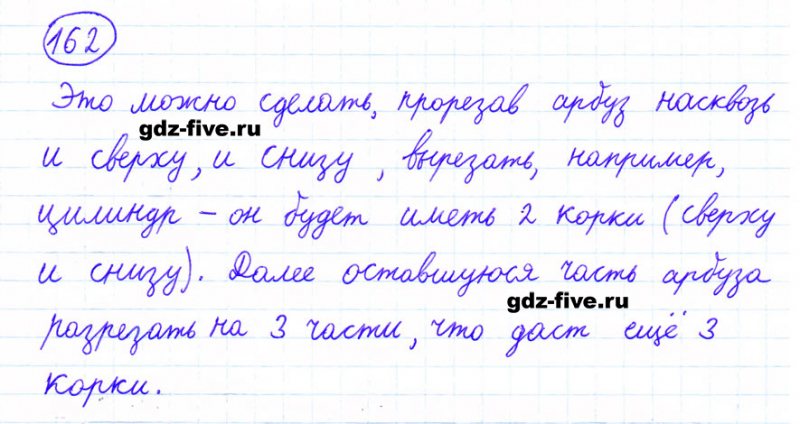 162
Это можно сделать, прорезав арбуз насквозь
gdz-five.ru
и сверху, и снизу, вырезать, например,
цилиндр – он будет иметь 2 корки (сверху
и снизу). Далее оставшуюся часть арбуза
gdz-five.ru
разрезать на 3 части, что даст ещё 3
корки.